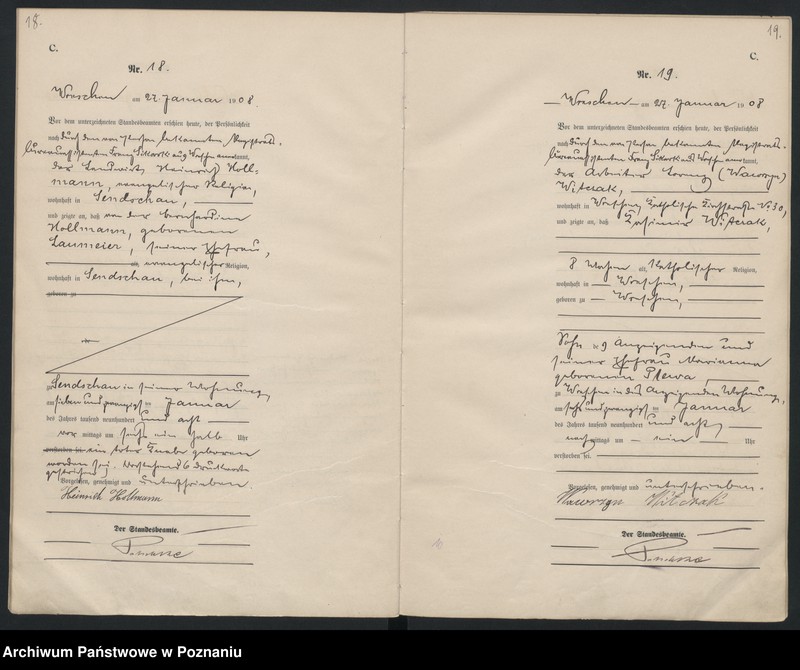 18.
C.
Nr. 18.
Wreschen am 27. Januar 1908.
Vor dem unterzeichneten Standesbeamten erschien heute, der Persönlichkeit
nach durch den von bekannten Magistrats-
Franz Sikorski aus Wreschen anerkannt,
der Landwirt Heinrich Holl-
mann, evangelischer Religion,
wohnhaft in Sendschau,
und zeigte an, daß von der
Hollmann, geborenen
Laumeier, seiner Ehefrau,
evangelischer Religion,
wohnhaft in Sendschau, bei ihm,
geboren zu
zu Sendschau in seiner Wohnung,
am sieben und zwanzigsten Januar
des Jahres tausend neunhundert und acht
vor mittags um ein halb Uhr
verstorben sei ein toter Knabe geboren
worden sei. Vorstehend 6 Druckworte
gestrichen.
Vorgelesen, genehmigt und unterschrieben.
Heinrich Hollmann
Der Standesbeamte.
19.
C.
Nr. 19.
Wreschen am 27. Januar 1908
Vor dem unterzeichneten Standesbeamten erschien heute, der Persönlichkeit
nach durch den von bekannten Magistrats-
Franz Sikorski aus Wreschen anerkannt,
der Arbeiter Lorenz (Wawrzyn)
Witczak,
wohnhaft in Wreschen, Katholische Kirchstraße Nr. 30,
und zeigte an, daß Kasimir Witczak,
8 Wochen alt, Katholischer Religion,
wohnhaft in Wreschen,
geboren zu Wreschen,
Sohn des Anzeigenden und
seiner Ehefrau Marianna
geborenen Plewa
zu Wreschen in des Anzeigenden Wohnung,
am sechs und zwanzigsten Januar
des Jahres tausend neunhundert und acht,
nach mittags um neun Uhr
verstorben sei.
Vorgelesen, genehmigt und unterschrieben.
Wawrzyn Witczak
Der Standesbeamte.
Archiwum Państwowe w Poznaniu